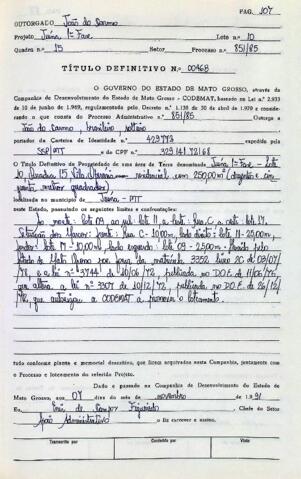 PAG. 107
OUTORGADO João do Carmo
Projeto Juína 1ª Fase Lote n.º 10
Quadra n.º 15 Setor Processo n.º 851/85
TÍTULO DEFINITIVO N.º 00468
O GOVERNO DO ESTADO DE MATO GROSSO, através da
Companhia de Desenvolvimento do Estado de Mato Grosso - CODEMAT, baseado na Lei n.º 2.933
de 10 de junho de 1.969, regulamentado pelo Decreto n.º 1.138 de 30 de abril de 1970 e considerando
o que consta do Processo Administrativo n.º 851/85 Outorga a
João do Carmo, brasileiro, solteiro
portador da Carteira de Identidade n.º 429773 expedida pela
SSP/MT e do CPF n.º 329141721/68
O Título Definitivo de Propriedade de uma área de Terra denominada Juína 1ª Fase - Lote
10, Quadra 15 residencial com 250,00 m² (duzentos e cin
coenta metros quadrados)
localizada no município de Juína - MT
neste Estado, passando os seguintes limites e confrontações:
ao norte: lote 09, ao sul: lote 11, a leste: Rua C, a oeste: lote 17.
frente: Rua C - 10,00m, lado direito: lote 11 - 25,00m,
fundos: lote 17 - 10,00m, lado esquerdo: lote 09 - 25,00m -
Estado de Mato Grosso matrícula 3352 livro 2C de 03/07/
78, e a lei nº 3744 de 10/06/76, publicada no D.O.E. de 11/06/76,
que altera a lei nº 3307 de 10/12/72, publicada no D.O.E. de 26/12/
72, que autoriza a CODEMAT a promover o loteamento.
tudo conforme planta e memorial descritivo, que ficam arquivados nesta Companhia, juntamente com
o Processo e loteamento do referido Projeto.
Dado e passado na Companhia de Desenvolvimento do Estado de
Mato Grosso, aos 07 dias do mês de novembro de 1991
Eu, Figueiredo Chefe do Setor
Apoio Administrativo o fiz escrever e assino.
Transcrito por Conferido por Visto